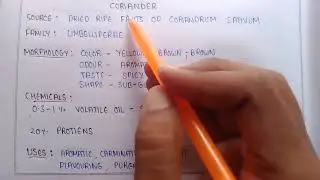 CORIANDER
SOURCE: DRIED RIPE FRUITS OF CORANDRUM SATIVUM
FAMILY: UMBELLIFERAE
MORPHOLOGY: COLOR - YELLOWISH BROWN, BROWN
ODOUR - AROMA
TASTE - SPICY
SHAPE - SUB-G
CHEMICALS:
0.3-1% VOLATILE OIL -
20% PROTIENS
USES: AROMATIC, CARMINA
FLAVOURING, PURGA